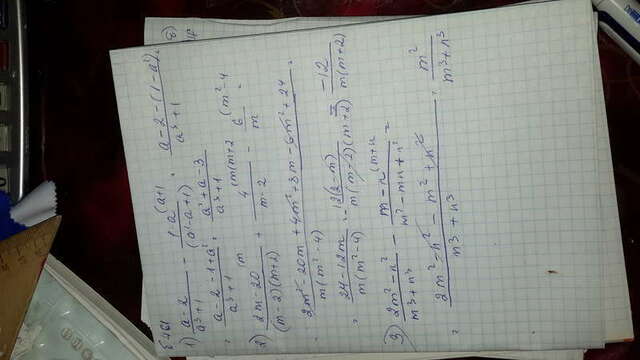 1) \frac{a-2}{a^3+1} - \frac{1-a^{(a+1}}{(a^2-a+1)} = \frac{a-2-(1-a^2)}{a^3+1} =
= \frac{a-2-1+a^2}{a^3+1} = \frac{a^2+a-3}{a^3+1}
2) \frac{2m-20^{(m}}{(m-2)(m+2)} + \frac{4^{(m(m+2}}{m-2} - \frac{6^{(m^2-4}}{m} =
= \frac{2m^2-20m+4m^2+8m-6m^2+24}{m(m^2-4)} =
= \frac{24-12m}{m(m^2-4)} = \frac{-12(2-m)}{m(m-2)(m+2)} = \frac{-12}{m(m+2)}
3) \frac{2m^2-n^2}{m^3+n^3} - \frac{m-n^{(m+n}}{m^2-mn+n^2} =
= \frac{2m^2-n^2-m^2+n^2}{m^3+n^3} = \frac{m^2}{m^3+n^3}